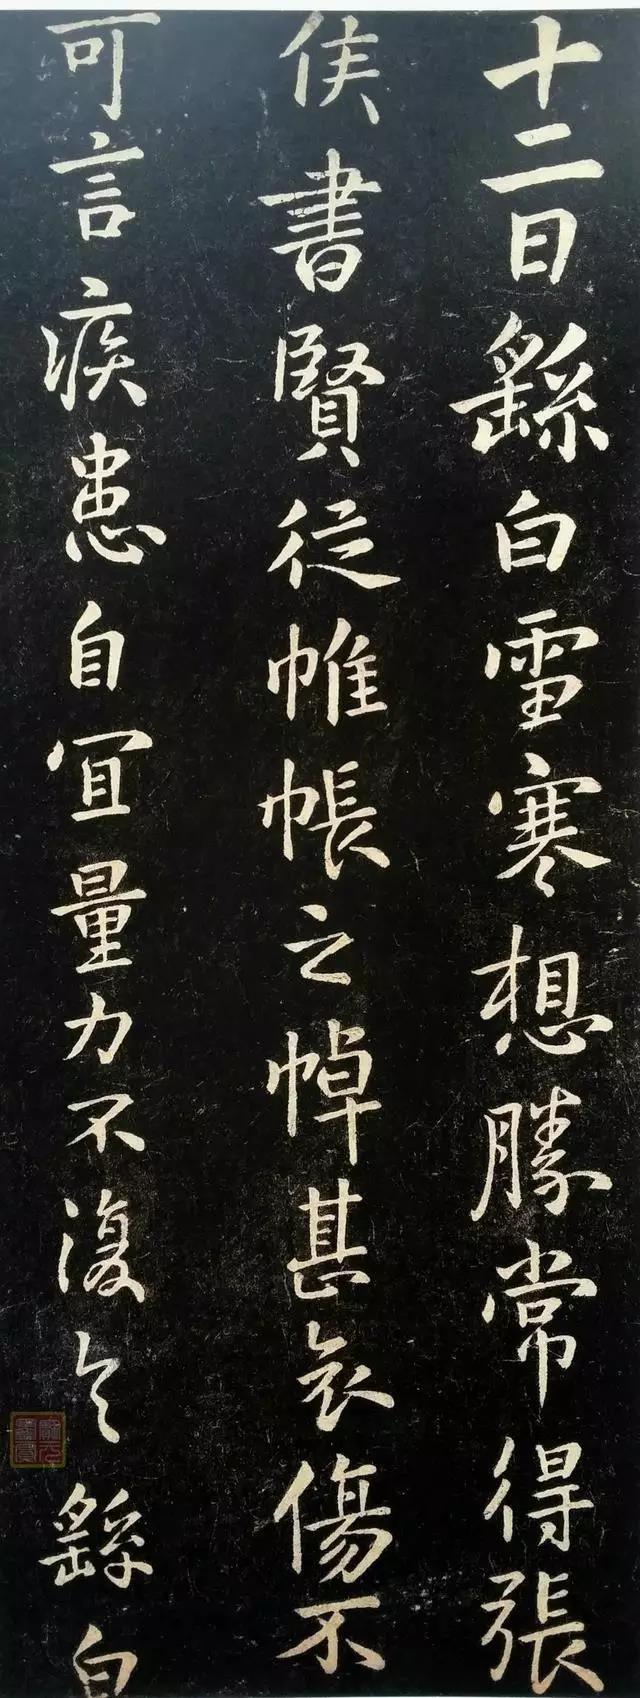 十二日繇白雪寒想勝常得張
侯書賢從帷帳之悼甚哀傷不
可言疾患自宜量力不復具繇白